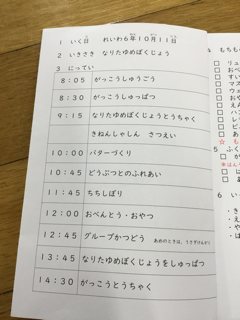 1 いく日 れいわ６年１０月１１日
2 いきさき なりたゆめぼくじょう
3 にってい
8:05 がっこうしゅうごう
8:30 がっこうしゅっぱつ
9:15 なりたゆめぼくじょうとうちゃく
きねんしゃしん さつえい
10:00 バターづくり
10:45 どうぶつとのふれあい
11:45 ちちしぼり
12:00 おべんとう・おやつ
12:45 グループかつどう あめのときは、
13:45 なりたゆめぼくじょうをしゅっぱつ
14:30 がっこうとうちゃく
4 もちも
□ リュ
□ おべ
□ すい
□ マス
□ ウェ
□ おや
□ えん
□ ハン
□ レジ
□ ぼう
☆ も
5 ふく
□
□
6 い
・き
・え
・や
・は